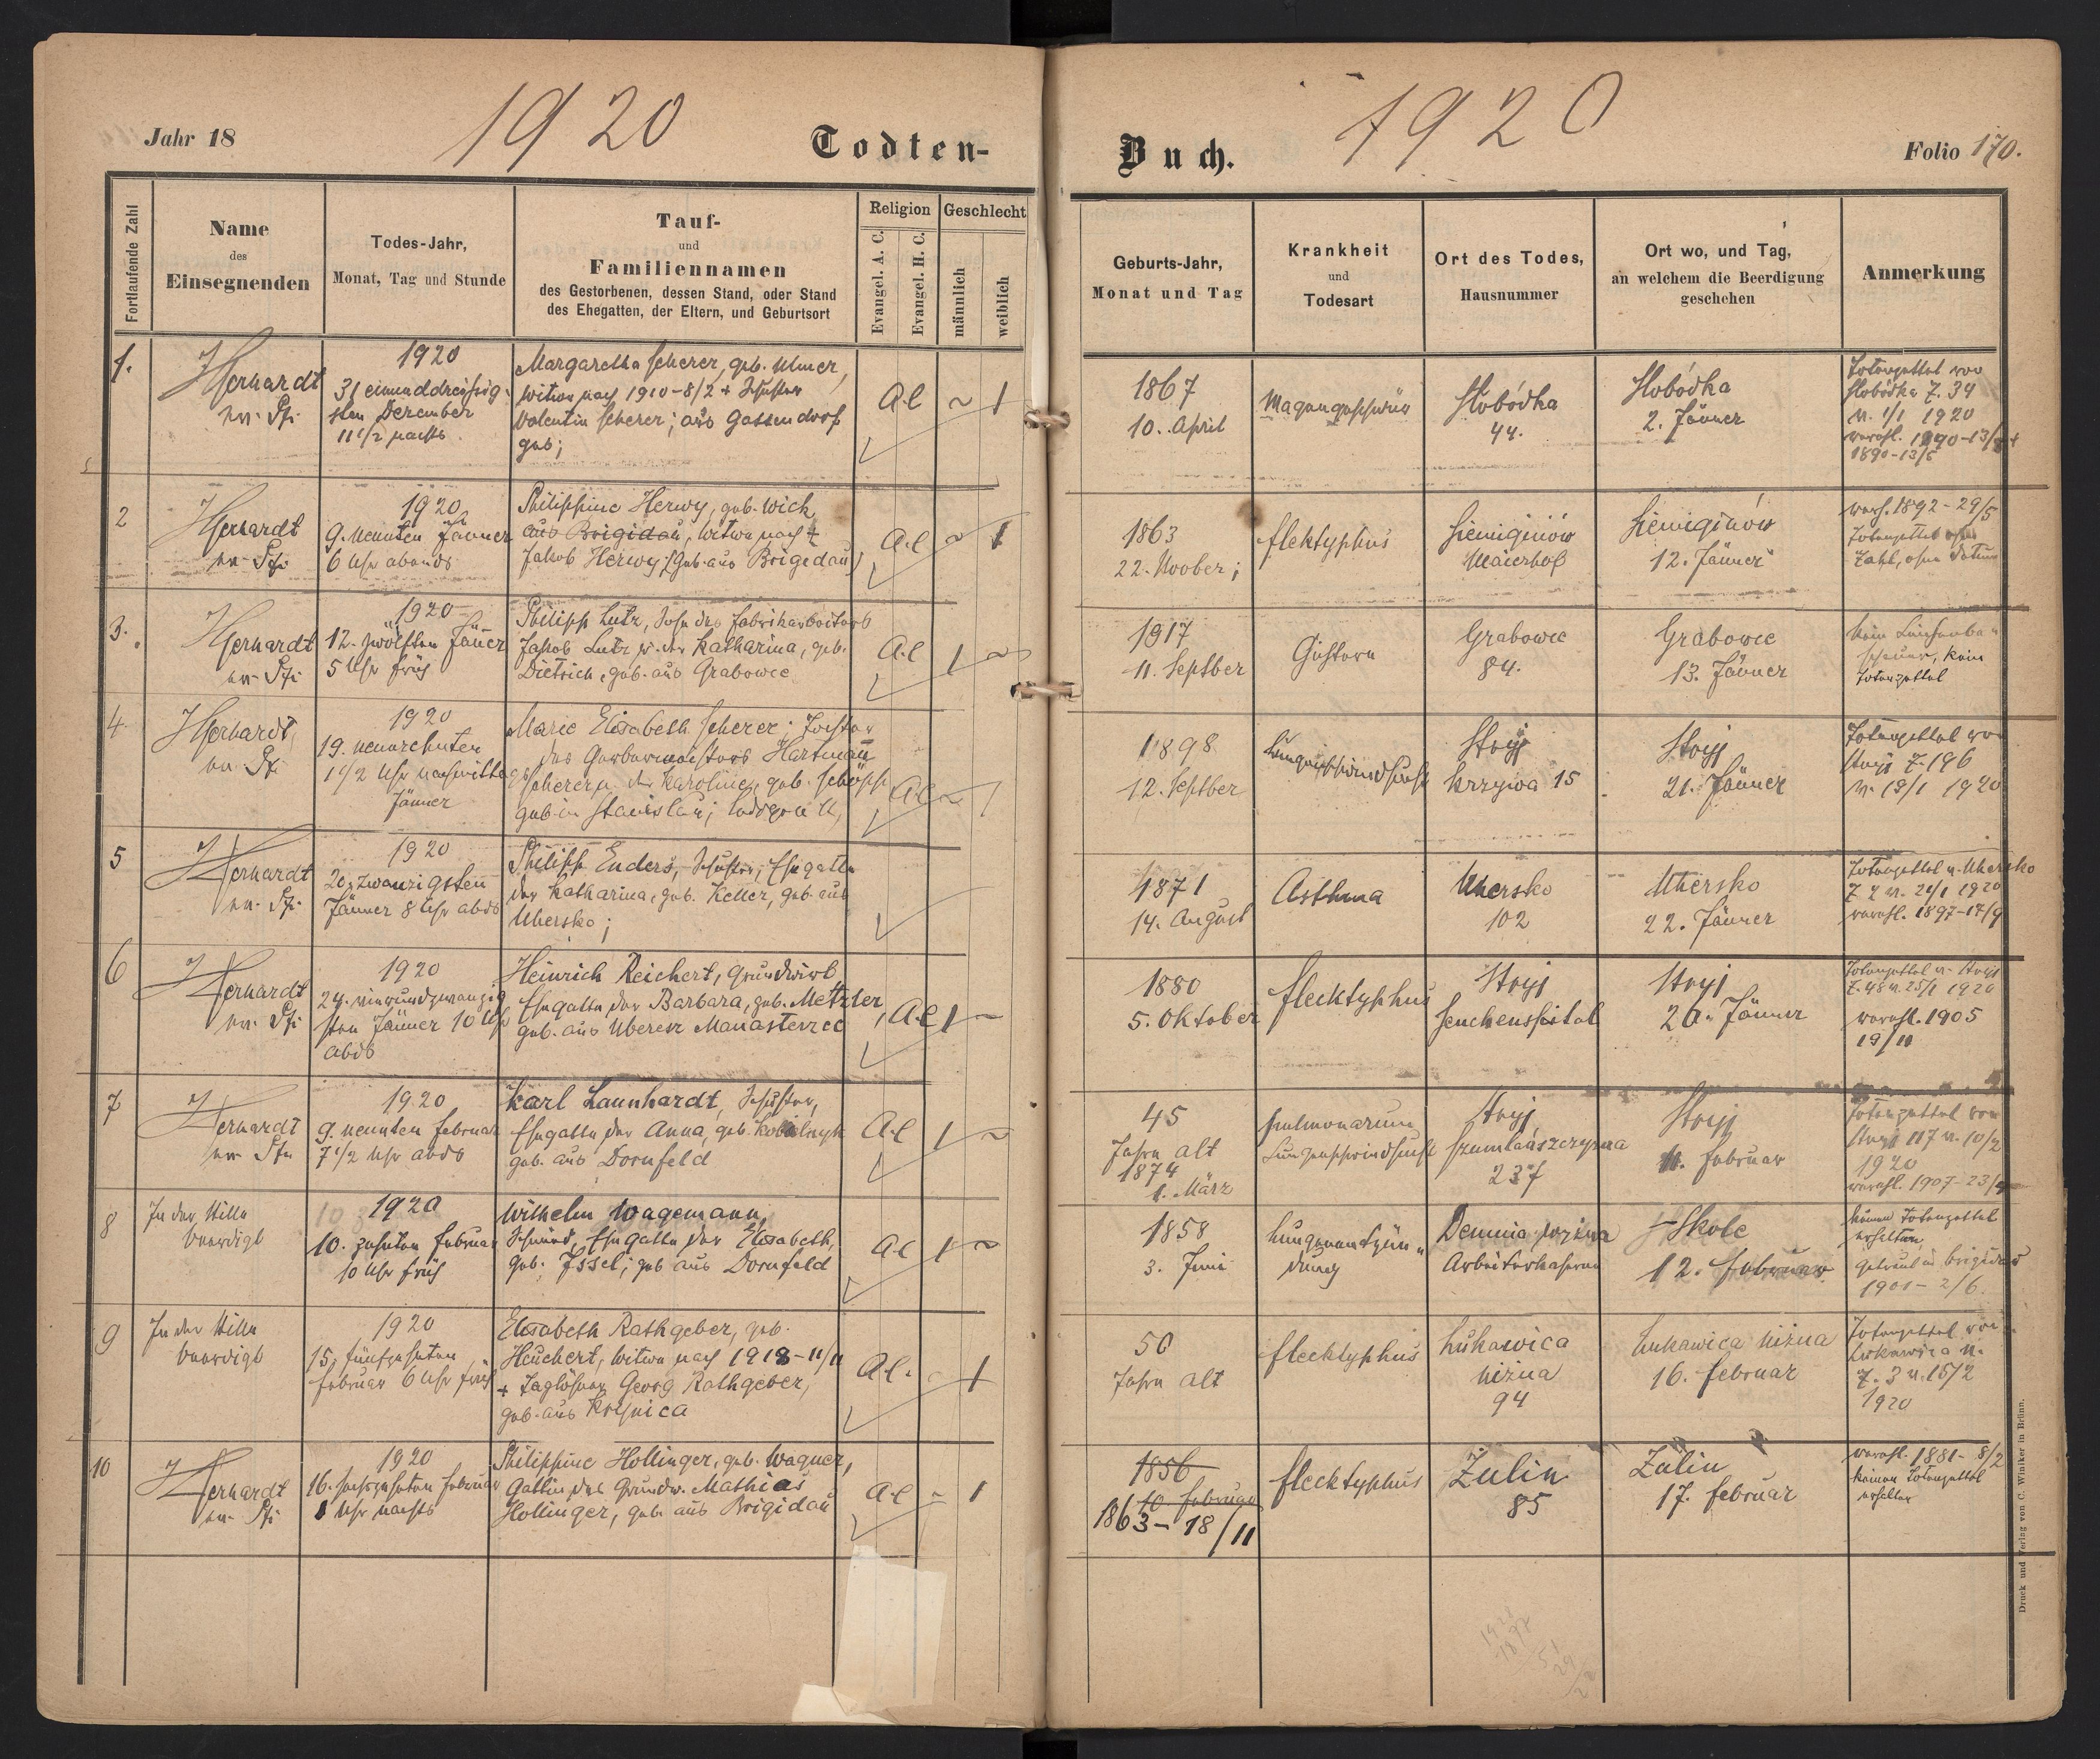 Jahr 18
1920
Todten-
Fortlaufende Zahl
Name
des
Einsegnenden
Todes-Jahr,
Monat, Tag und Stunde
Tauf-
und
Familiennamen
des Gestorbenen, dessen Stand, oder Stand
des Ehegatten, der Eltern, und Geburtsort
Religion
Evangel. A. C.
Evangel. H. C.
Geschlecht
männlich
weiblich
1.
1920
31 einunddreissig-
sten Dezember
11 1/2 nachts
Margaretha Scherer, geb. Ulmer,
Witwe nach 1910-8/2 + Schuster
Valentin Scherer; aus Gassendorf
geb;
A.C
~
1
2
1920
9. neunten Jänner
6 Uhr abends
Philippine Herwy, geb. Wich
aus Brigidau, Witwe nach +
Jakob Herwy; (Geb. aus Brigidau)
A.C
~
1
3.
1920
12. zwölften Jänner
5 Uhr früh
Philipp Lutz, Sohn des Fabrikarbeiters
Jakob Lutz u. der Katharina, geb.
Dietrich, geb. aus Grabowce
A.C
1
~
4
1920
19. neunzehnten
1 1/2 Uhr nachmittags
Jänner
Marie Elisabeth Scherer; Tochter
des Gerbermeisters Hartmann
Scherer u. der Karoline, geb. Schöpp
geb in Stanislau;
A.C
~
1
5
1920
20. zwanzigsten
Jänner 8 Uhr abds
Philipp Enders, Schuster, Ehegatte
der Katharina, geb. Keller, geb. aus
Uhersko;
6
1920
24. vierundzwanzig
sten Jänner 10 Uhr
abds
Heinrich Reichert, Grundwirt
Ehegatte der Barbara, geb. Metzler,
geb. aus Manasterzec
A.C
1
~
7
1920
9. neunten Februar
7 1/2 Uhr abds
Karl Launhardt, Schuster,
Ehegatte der Anna, geb.
geb. aus Dornfeld
A.C
1
~
8
In der Stille
beerdigt
1920
10. zehnten Februar
10 Uhr früh
Wilhelm Wagemann,
Schmied, Ehegatte der Elisabeth,
geb. Issel; geb aus Dornfeld
A.C
1
~
9
In der Stille
beerdigt
1920
15. fünfzehnten
Februar 6 Uhr früh
Elisabeth Rathgeber, geb.
Heuchert, Witwe nach 1918-11/11
+ Taglöhner Georg Rathgeber,
geb. aus
A.C.
1
10
1920
16. sechzehnten Februar
Uhr nachts
Philippine Hollinger, geb. Wagner,
Gattin des Grundw. Mathias
Hollinger, geb. aus Brigidau
A.C
~
1
Buch.
1920
Folio 170.
Geburts-Jahr,
Monat und Tag
Krankheit
und
Todesart
Ort des Todes,
Hausnummer
Ort wo, und Tag,
an welchem die Beerdigung
geschehen
Anmerkung
1867
10. April
Magengeschwür
Slobódka
44.
Slobódka
2. Jänner
Totenzettel von
Slobódka Z. 34
v. 1/1 1920
1890-13/5
1863
22. Novber;
Flektyphus
Maierhof
12. Jänner
verh. 1892-29/5
Totenzettel ohne
Zahl, ohne Datum
1917
11. Septber
Gestorben
Grabowce
84.
Grabowce
13. Jänner
kein Leichenbe-
schauer, kein
Totenzettel
1898
12. Septber
Lungenschwindsucht
Stryj
Krzywa 15
Stryj
21. Jänner
Totenzettel von
Stryj Z. 196
v. 19/1 1920
1871
14. August
Asthma
Uhersko
102
Uhersko
22. Jänner
Totenzettel v. Uhersko
Z 2 v. 21/1 1920
verehl. 1897-17/9
1880
5. Oktober
Flecktyphus
Stryj
Seuchenspital
Stryj
26. Jänner
Totenzettel v. Stryj
Z. 48 v. 25/1 1920
verehl. 1905
19/11
45
Jahre alt
1874
1. März
Lungenschwindsucht
Stryj
237
Stryj
11. Februar
Totenzettel von
Stryj 117 v. 10/2
1920
verehl. 1907-23/
1858
3. Juni
Lungenentzün-
dung
Demnia
Arbeiterkaserne
Skole
12. Februar
keinen Totenzettel
erhalten
getraut in Brigidau
1901-2/6.
50
Jahre alt
Flecktyphus
Lukawica
niżna
94
Lukawica niżna
16. Februar
Totenzettel von
Lukawica n.
Z. 3 v. 15/2
1920
1856
10 Februar
1863-18/11
Flecktyphus
Zulin
85
Zulin
17. Februar
verehl. 1881-8/2
keinen Totenzettel
erhalten
Druck und Verlag von C. Winiker in Brünn.